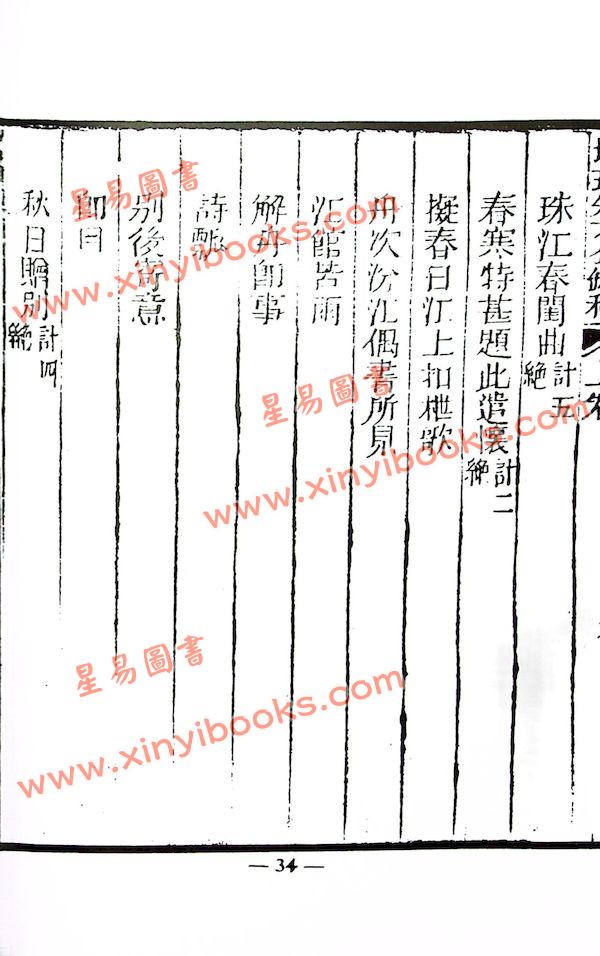 珠江春閨曲計五絕
春寒特甚題此遣懷計二絕
擬春日江上扣枻歌
舟次汾江偶書所見
江館苦雨
解舟即事
詩
別後寄意
即目
秋日贈別計四絕
— 34 —
星易圖書
www.xinyibooks.com
星易圖書
www.xinyibooks.com
星易圖書
www.xinyibooks.com